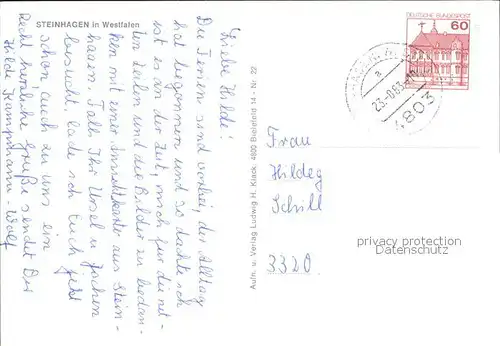 STEINHAGEN in Westfalen
Liebe Hilde!
Die Ferien sind vorbei, der Alltag
hat begonnen und so dachte ich
ist es an der Zeit, mich für die net-
ten Zeilen und die Bilder zu bedan-
ken mit einer Ansichtskarte aus Stein-
hagen. Falls Ihr Ursel in
besucht, lade ich Euch jetzt
schon auch zu uns ein
Recht herzliche Grüße sendet Dir
Hilde Kampmann-Wolf
Aufn. u. Verlag Ludwig H. Klack 4800 Bielefeld 14 - Nr. 22
DEUTSCHE BUNDESPOST
60
a
4803
Frau
Hildeg
Schill
3320
privacy protection
Datenschutz